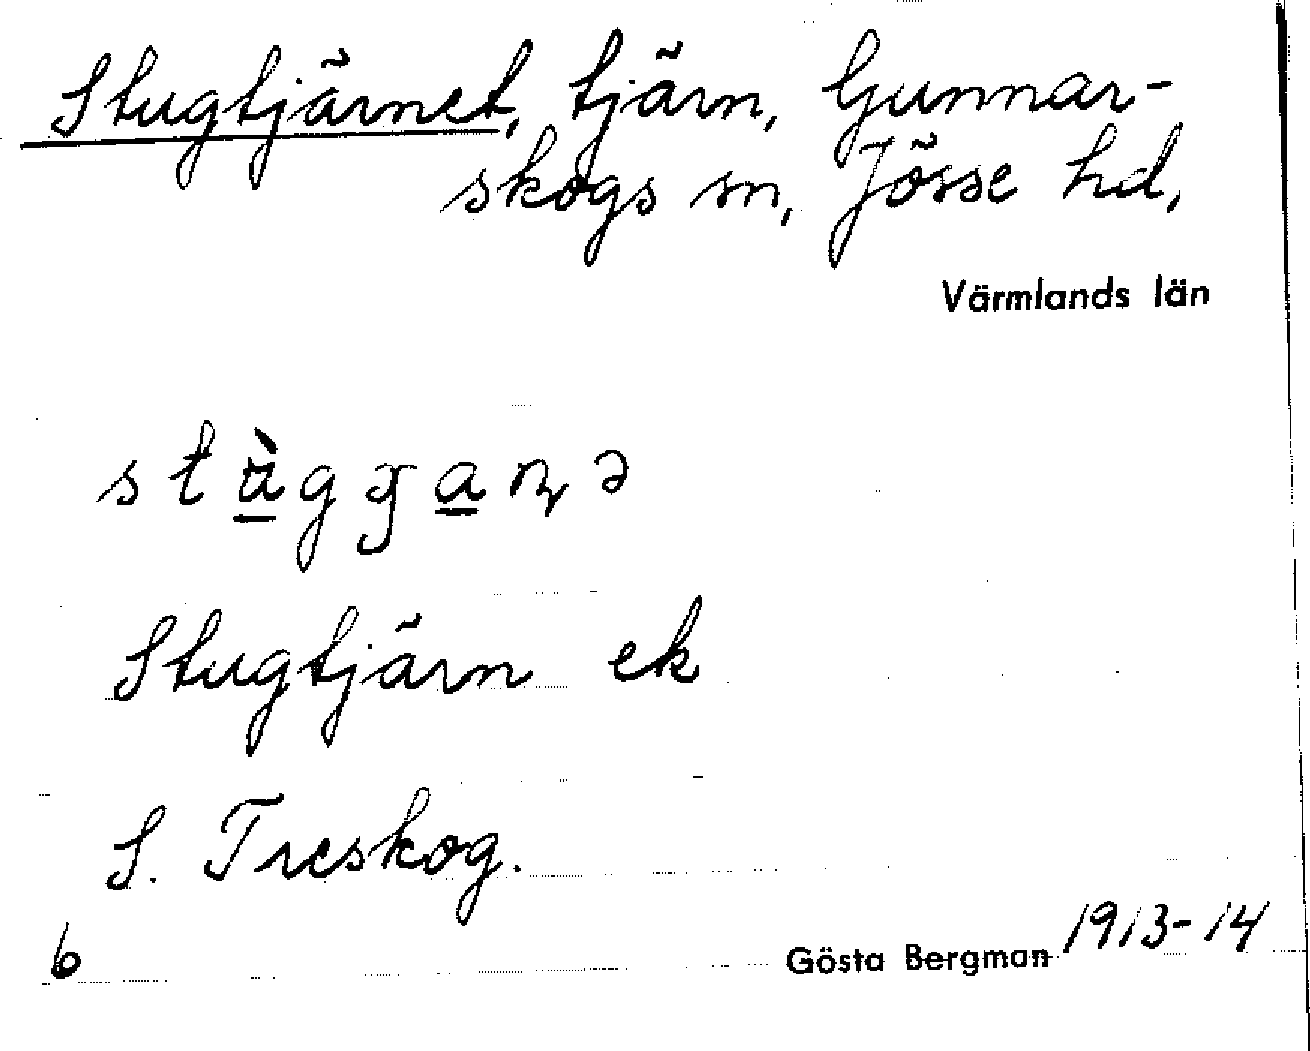 Stugtjärnet, tjärn, Gunnar-
skogs sn, Jösse hd,
Värmlands län
Stugtjärn ek
S. Treskog.
6
Gösta Bergman 1913-14